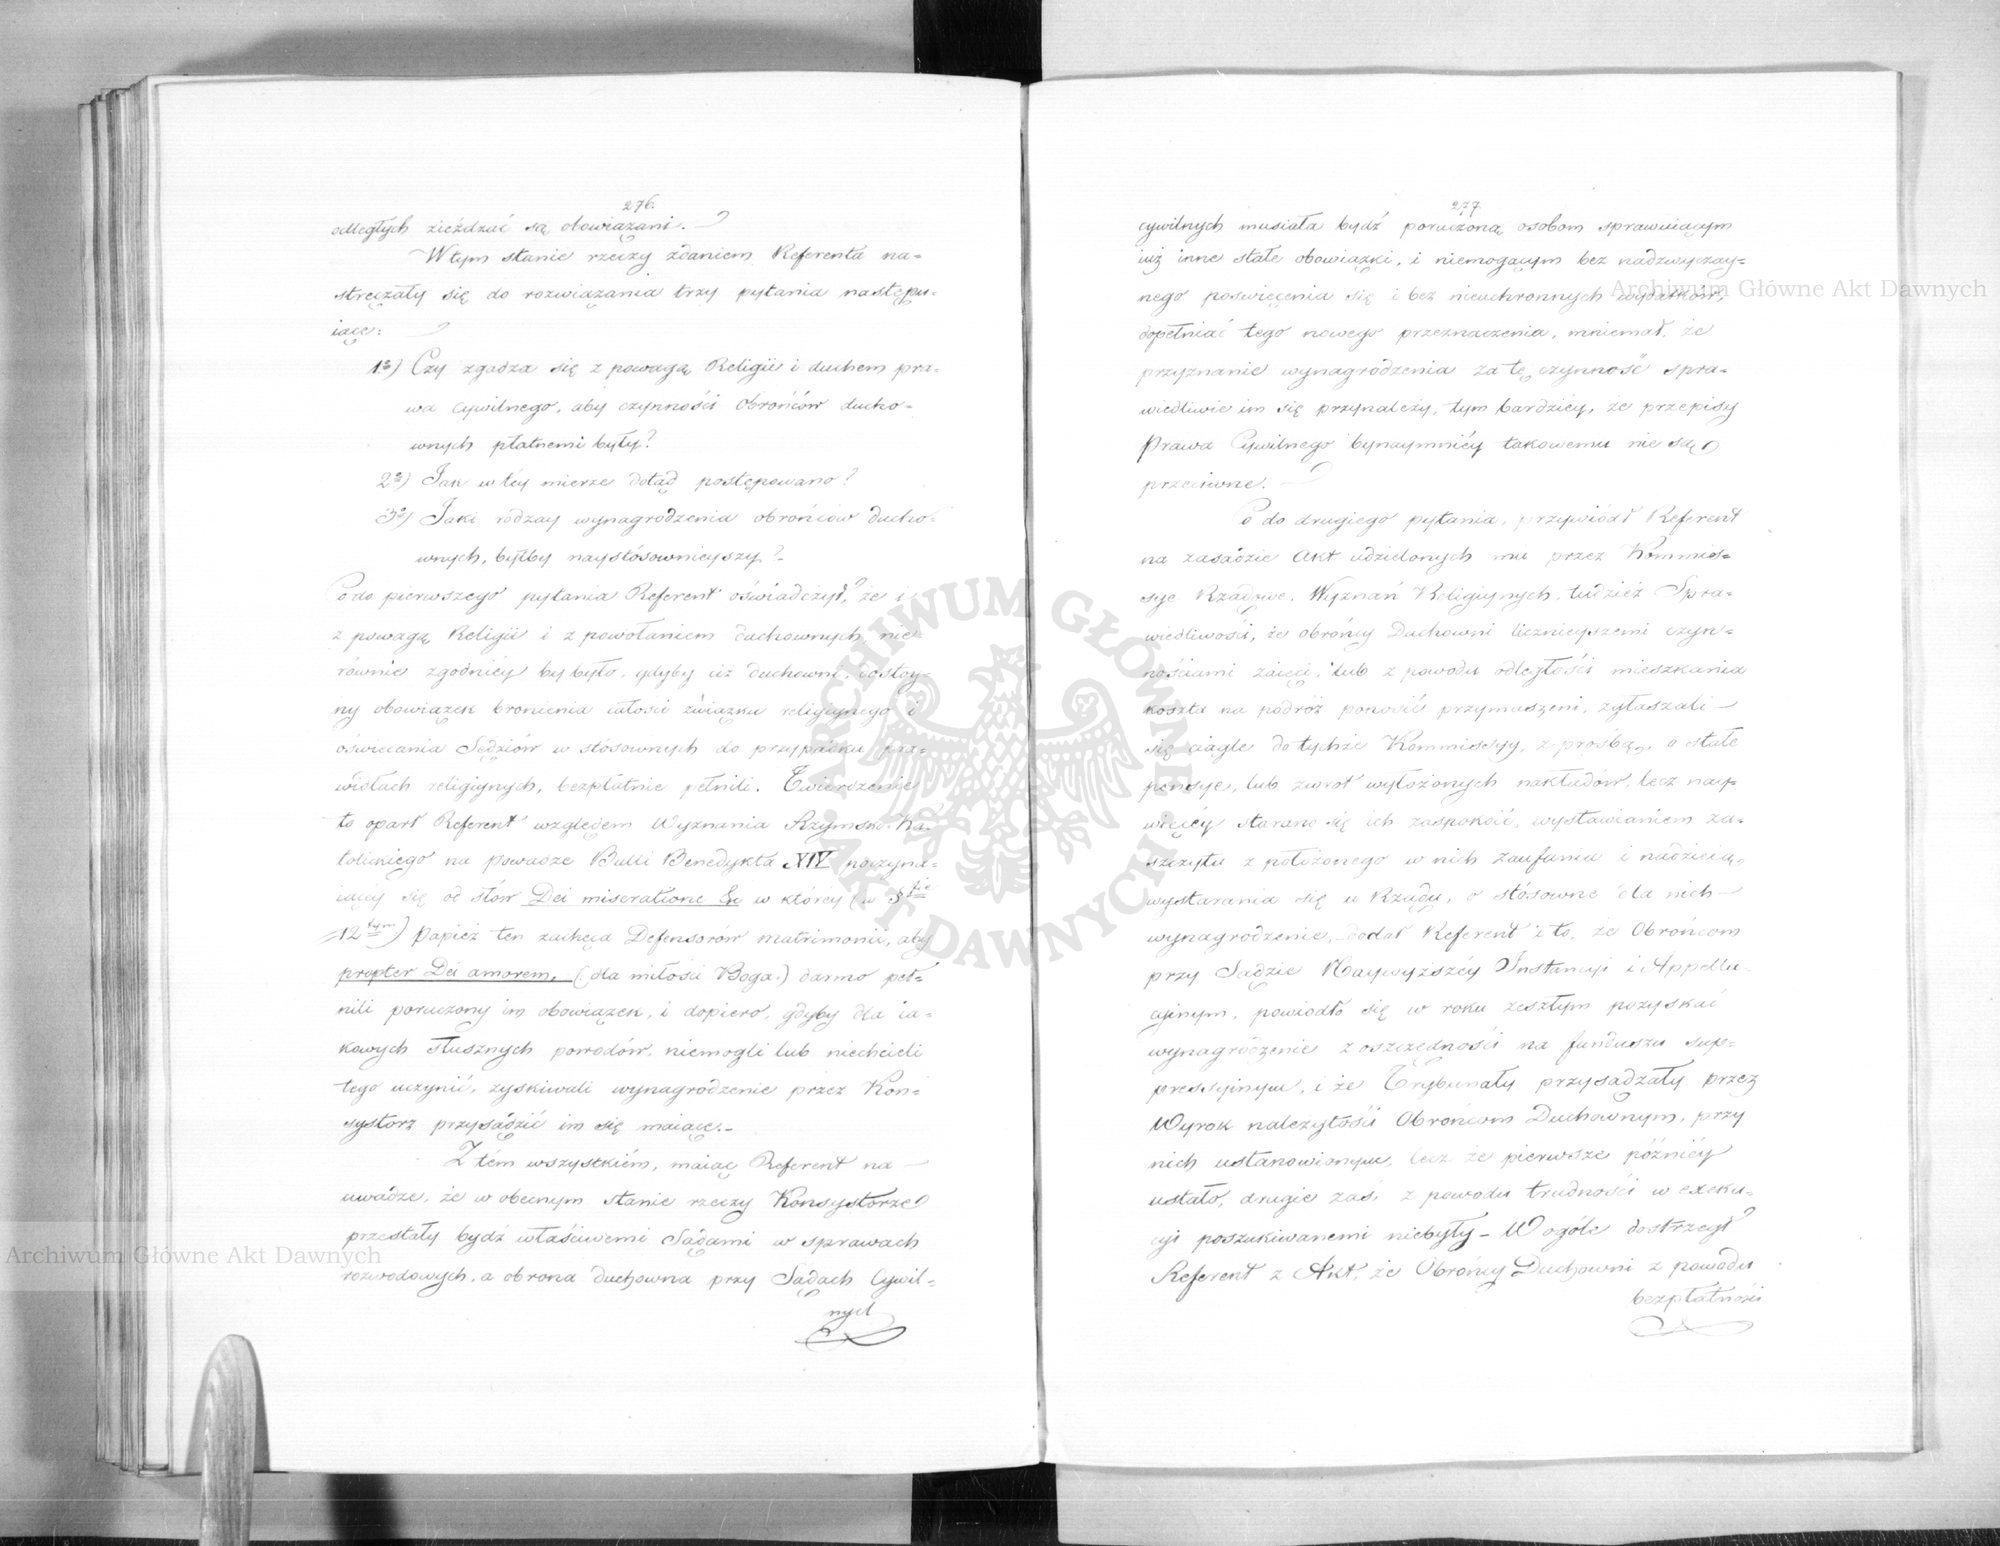 276.
odległych zieżdzać są obowiązani.
W tym stanie rzeczy zdaniem Referenta na=
stręczały się do rozwiązania trzy pytania następu=
iące:
1o) Czy zgadza się z powagą Religii i duchem pra=
wa Cywilnego, aby czynności Obrońców ducho=
wnych płatnemi były?
2o) Jak w tey mierze dotąd postępowano?
3o) Jaki rodzay wynagrodzenia obrońców ducho=
wnych, byłby naystósownieyszy?
Co do pierwszego pytania Referent oświadczył, że i
z powagą Religii i z powołaniem duchownych nie
równie zgodniey by było, gdyby ciż duchowni, dostoy=
ny obowiązek bronienia całości związku religiynego i
oświecania Sędziów w stósownych do przypadku pra=
widłach religiynych, bezpłatnie pełnili. Twierdzenie
to oparł Referent względem Wyznania Rzymsko-Ka=
tolickiego na powadze Bulli Benedykta XIV poczyna=
iącey się od słów Dei miseratione &c w którey (w §fie
12tym) Papież ten zachęca Defensorów matrimonii, aby
propter Dei amorem, (dla miłości Boga.) darmo peł=
nili poruczony im obowiązek, i dopiero, gdyby dla ia=
kowych słusznych powodów, niemogli lub niechcieli
tego uczynić, zyskiwali wynagrodzenie przez Kon=
systorz przysądzić im się maiące.
Z tém wszystkiém, maiąc Referent na
uwadze, że w obecnym stanie rzeczy Konsystorze
przestały bydź właściwemi Sądami w sprawach
rozwodowych, a obrona duchowna przy Sądach Cywil=
nych
277.
cywilnych musiała bydź poruczoną osobom sprawuiącym
iuż inne stałe obowiązki, i niemogącym bez nadzwyczay=
nego poswięcenia się i bez nieuchronnych wydatków,
dopełniać tego nowego przeznaczenia, mniemał, że
przyznanie wynagrodzenia za tę czynność spra=
wiedliwie im się przynależy, tym bardziéy, że przepisy
Prawa Cywilnego bynaymniéy takowemu nie są
przeciwne.
Co do drugiego pytania, przywiódł Referent
na zasadzie Akt udzielonych mu przez Kommis=
sye Rządowe, Wyznań Religiynych, tudzież Spra=
wiedliwości, że obrońcy Duchowni licznieyszemi czyn=
nościami zaięci, lub z powodu odległości mieszkania
koszta na podróż ponosić przymuszeni, zgłaszali
się ciągle do tychże Kommissyy, z prośbą, o stałe
pensye, lub zwrot wyłożonych nakładów, lecz nay=
więcéy starano się ich zaspokoić, wystawianiem za=
szczytu z położonego w nich zaufania i nadzieią
wystarania się u Rządu, o stósowne dla nich
wynagrodzenie, dodał Referent i to, że Obrońcom
przy Sądzie Naywyższéy Instancyi i Appella=
cyinym, powiodło się w roku zeszłym pozyskać
wynagrodzenie z oszczędności na funduszu sup=
pressyinym, i że Trybunały przysądzały przez
Wyrok należytości Obrońcom Duchownym, przy
nich ustanowionym, lecz że pierwsze późniéy
ustało, drugie zaś, z powodu trudności w exeku=
cyi poszukiwanemi niebyły – W ogóle dostrzegł
Referent z Akt, że Obrońcy Duchowni z powodu
bezpłatności
Archiwum Główne Akt Dawnych
Archiwum Główne Akt Dawnych
ARCHIWUM GŁÓWNE AKT DAWNYCH